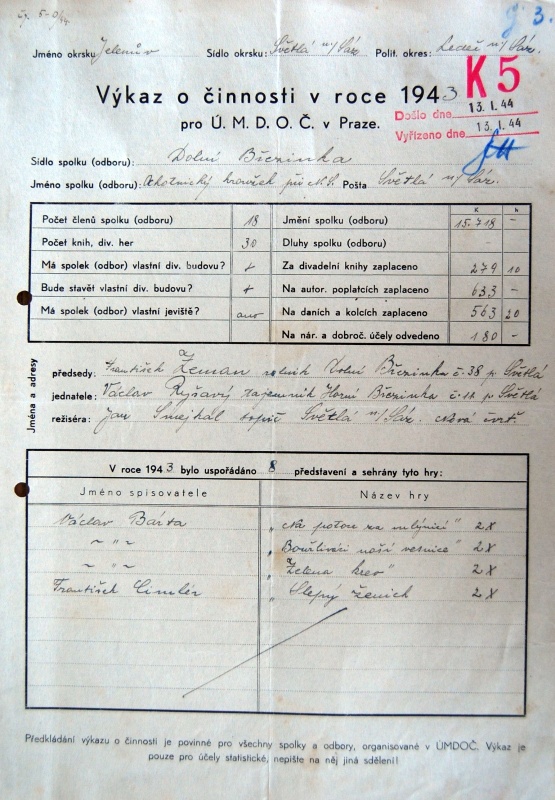 Čj. 5-0/44 3.
Jméno okrsku Jelenův Sídlo okrsku: Světlá n/Sáz. Polit. okres: Ledeč n/Sáz.
K5
Výkaz o činnosti v roce 1943
Došlo dne 13.I.44
pro Ú. M. D. O. Č. v Praze.
Vyřízeno dne 13.I.44
Sídlo spolku (odboru): Dolní Březinka
Jméno spolku (odboru): Ochotnický kroužek při N.S. Pošta Světlá n/Sáz.
K h
Počet členů spolku (odboru) 18 Jmění spolku (odboru) 15.718 –
Počet knih, div. her 30 Dluhy spolku (odboru) –
Má spolek (odbor) vlastní div. budovu? + Za divadelní knihy zaplaceno 279 10
Bude stavět vlastní div. budovu? + Na autor. poplatcích zaplaceno 633 –
Má spolek (odbor) vlastní jeviště? ano Na daních a kolcích zaplaceno 563 20
Na nár. a dobroč. účely odvedeno 180 –
Jména a adresy
předsedy: František Zeman rolník Dolní Březinka č. 38 p Světlá
jednatele: Václav Ryšavý tajemník Horní Březinka č. 11 p Světlá
režiséra: Jan Smejkal topič Světlá n/Sáz. Nová čtvrť.
V roce 1943 bylo uspořádáno 8 představení a sehrány tyto hry:
Jméno spisovatele Název hry
Václav Bárta „Na potoce za mlýnicí" 2X
~ " ~ „Bouřliváci naší vesnice" 2X
~ " ~ „Zelená krev" 2X
František Cimler „Slepý ženich 2X
Předkládání výkazu o činnosti je povinné pro všechny spolky a odbory, organisované v ÚMDOČ. Výkaz je
pouze pro účely statistické, nepište na něj jiná sdělení!